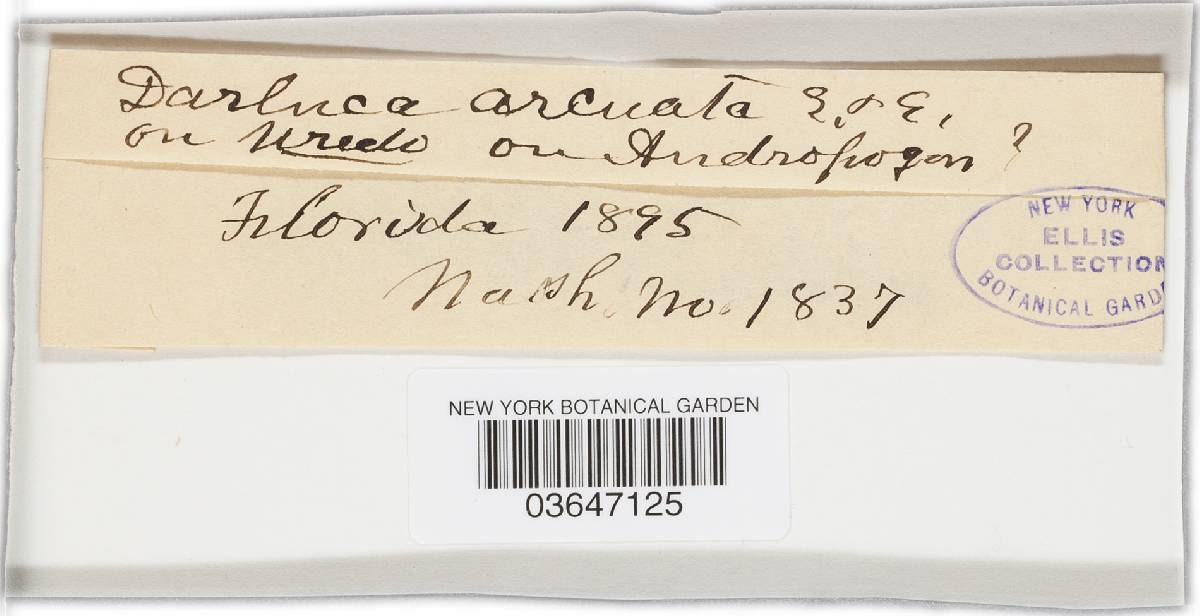 Darluca arcuata E. & E.
on Uredo on Andropogon ?
Florida 1895
Nash. No. 1837
NEW YORK
ELLIS
COLLECTION
BOTANICAL GARDE
NEW YORK BOTANICAL GARDEN
03647125